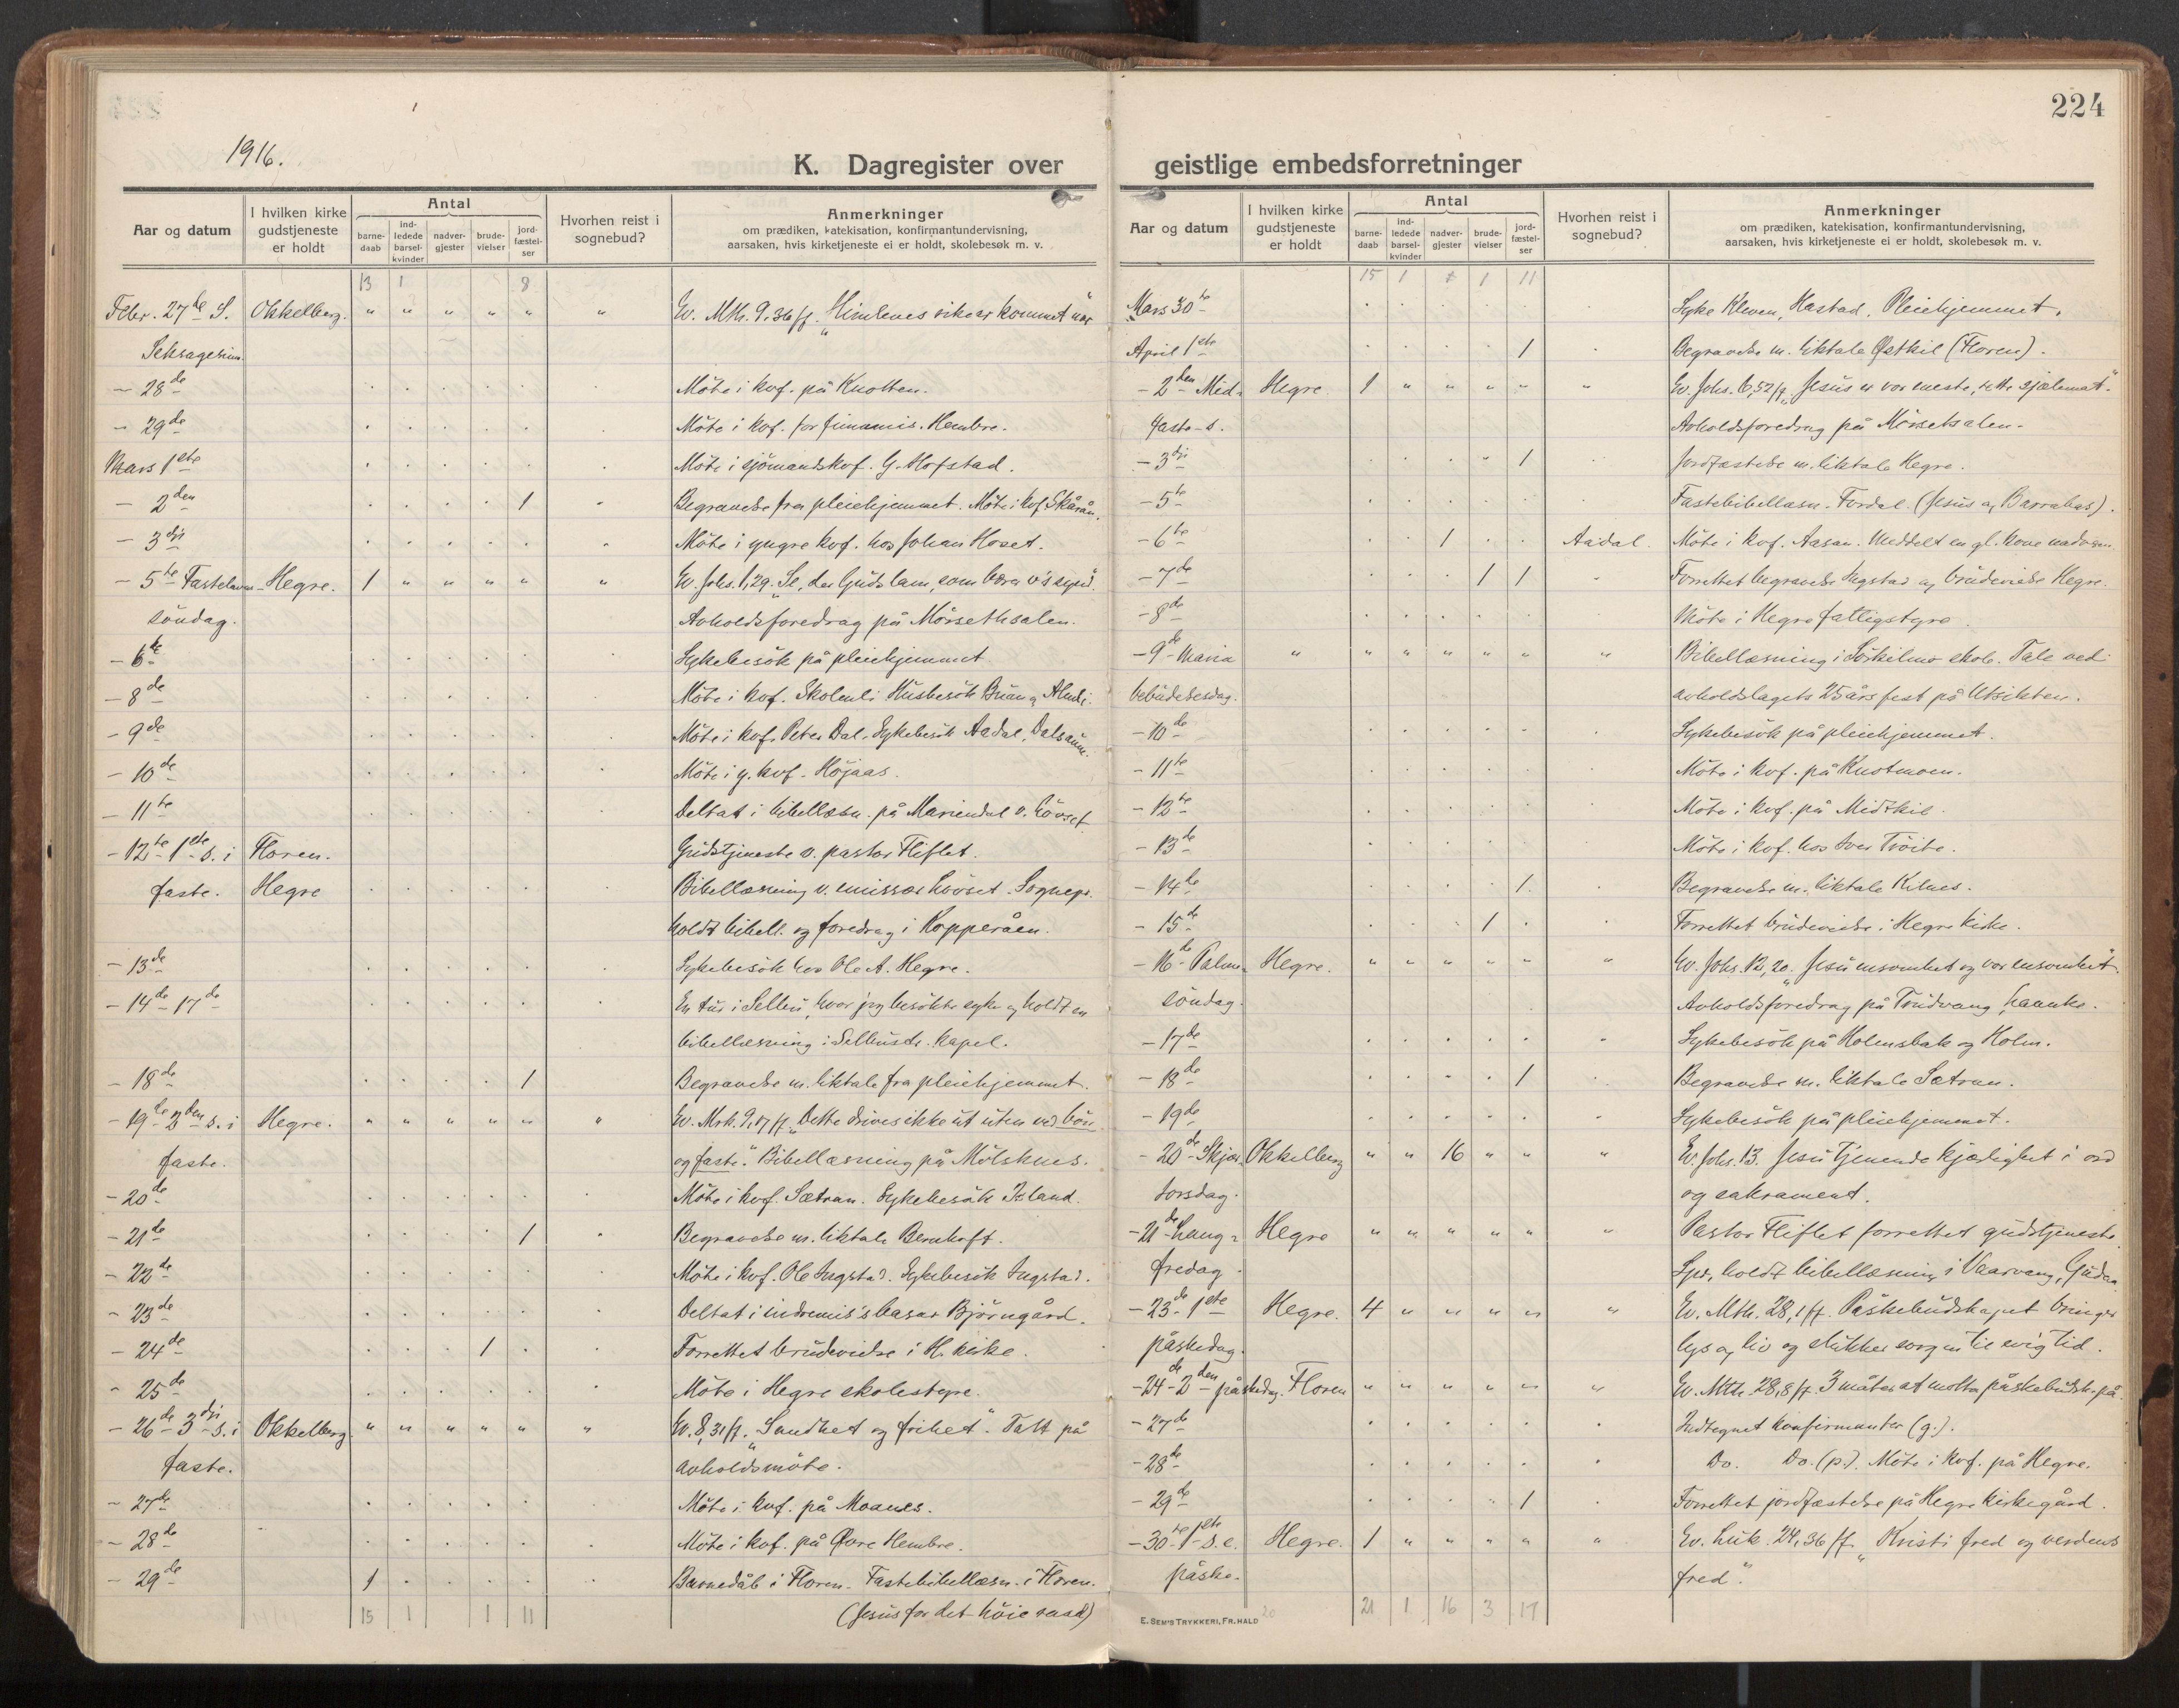 224
1916.
K. Dagregister over geistlige embedsforretninger
Aar og datum
I hvilken kirke gudstjeneste er holdt
Antal
barne-daab
ind-ledede barsel-kvinder
nadver-gjester
brude-vielser
jord-fæstel-ser
Hvorhen reist i sognebud?
Anmerkninger
om prædiken, katekisation, konfirmantundervisning,
aarsaken, hvis kirketjeneste ei er holdt, skolebesøk m. v.
13 1 8
Febr. 27de S. Okkelberg. " " " " " " Ev. Mth. 9,36 ff. "Himlenes rike er kommet nær"
Seksagesima.
- 28de Möte i kvf. på Knotten.
- 29de Möte i kvf. for Hembre.
Mars 1ste Möte i sjömandskvf. G. Hofstad.
- 2den 1 Begravelse fra pleiehjemmet. Möte i kvf.
- 3dje Möte i yngre kvf. hos Johan Hoset.
- 5te Fastelavns- Hegre. 1 " " " " " Ev. Johs. 1,29. "Se, der Guds lam, som bærer v's synd".
söndag. Avholdsforedrag på Mörsethsalen.
- 6te Sykebesök på pleiehjemmet
- 8de Möte i kvf. Skolenli Husbesök
- 9de Möte i kvf. Peter Dal. Sykebesök Aadal,
- 10de Möte i y. kvf. Höjaas.
- 11te Deltat i bibellæsn. på Mariendal v. Lövset
- 12te 1ste s. i Floren. Gudstjeneste v. pastor Fliflet.
faste. Hegre Bibellæsning v. emissær Lövset. Sognepr.
holdt bibell. og foredrag i Kopperåen.
- 13de Sykebesök hos Ole A. Hegre.
- 14de-17de En tur i Selbu, hvor jeg besökte syke og holdt en
bibellæsning i Selbustr. kapel.
- 18de 1 Begravelse m. liktale fra pleiehjemmet.
- 19de 2den s. i Hegre. " " " " " " Ev. Mrk. 9,17 ff. "Dette drives ikke ut uten ved bön
faste. og faste". Bibellæsning på Mölsknes.
- 20de Möte i kvf. Sætran. Sykebesök
- 21de 1 Begravelse m. liktale Bernhoft.
- 22de Möte i kvf. Ole Ingstad. Sykebesök Ingstad.
- 23de Deltat i indremis's basar Björngård.
- 24de 1 Forrettet brudevielse i H. kirke.
- 25de Möte i Hegre skolestyre.
- 26de 3dje s. i Okkelberg. " " " " " " Ev. 8,31 ff. "Sandhet og frihet". Talt på
faste. avholdsmöte.
- 27de Möte i kvf. på Moanes.
- 28de Möte i kvf. på Øvre Hembre.
- 29de 1 Barnedåb i Floren. Fastebibellæsn. i Floren.
15 1 1 11 (Jesus for det höie raad)
Aar og datum
I hvilken kirke gudstjeneste er holdt
Antal
barne-daab
ind-ledede barsel-kvinder
nadver-gjester
brude-vielser
jord-fæstel-ser
Hvorhen reist i sognebud?
Anmerkninger
om prædiken, katekisation, konfirmantundervisning,
aarsaken, hvis kirketjeneste ei er holdt, skolebesøk m. v.
15 1 1 11
Mars 30te Syke Kleven, Hastad, Pleiehjemmet.
April 1ste 1 Begravelse m. liktale Østkil (Floren).
- 2den Mid- Hegre. 1 " " " " " Ev. Johs. 6,52 ff. "Jesus er vor eneste, rette sjælemat".
faste-s. Avholdsforedrag på Mörsetsalen.
- 3dje 1 Jordfæstelse m. liktale Hegre.
- 5te Fastebibellæsn. Fordal. (Jesus og Barrabas).
- 6te 1 Aadal. Möte i kvf. Aasan. Meddelt en gl. kone nadveren.
- 7de 1 1 Forrettet begravelse Ingstad og brudevielse Hegre.
- 8de Möte i Hegre fattigstyre.
- 9de Maria " " " " " " " Bibellæsning i Sörkilens skole. Tale ved
bebudelsesdag. avholdslagets 25 års fest på Utsikten.
- 10de Sykebesök på pleiehjemmet.
- 11te Möte i kvf. på Kustmoen.
- 12te Möte i kvf. på Midtkil.
- 13de Möte i kvf. hos Iver Tröite.
- 14de 1 Begravelse m. liktale Kilnes.
- 15de 1 Forrettet brudevielse i Hegre kirke.
- 16de Palme- Hegre. " " " " " " Ev. Johs. 12,20. "Jesu ensomhet og vor ensomhet".
söndag. Avholdsforedrag på Trudvang, Laanke.
- 17de Sykebesök på Holmsbak og Holm.
- 18de 1 Begravelse m. liktale Sætran.
- 19de Sykebesök på pleiehjemmet.
- 20de Skjær- Okkelberg " " 16 " " " Ev. Johs. 13. Jesu tjenende kjærlighet i ord
torsdag. og sakrament.
- 21de Lang- Hegre " " " " " " Pastor Fliflet forrettet gudstjeneste.
fredag. Spr. holdt bibellæsning i Vaarvang,
- 23de 1ste Hegre. 4 " " " " " Ev. Mth. 28,1 ff. Påskebudskapet bringer
påskedag. lys og liv og slukker sorgen til evig tid.
- 24de 2den påskedag. Floren " " " " " " Ev. Mth. 28,8 ff. 3 måter at motta påskebudsk. på.
- 27de Indtegnet konfirmanter (g.).
- 28de Do. Do. (p.). Möte i kvf. på Hegre.
- 29de 1 Forrettet jordfæstelse på Hegre kirkegård.
- 30te 1ste s. e. Hegre. 1 " " " " " Ev. Luk. 24,36 ff. "Kristi fred og verdens
påske. fred".
20 21 1 16 3 17
E. SEM'S TRYKKERI, FR.HALD